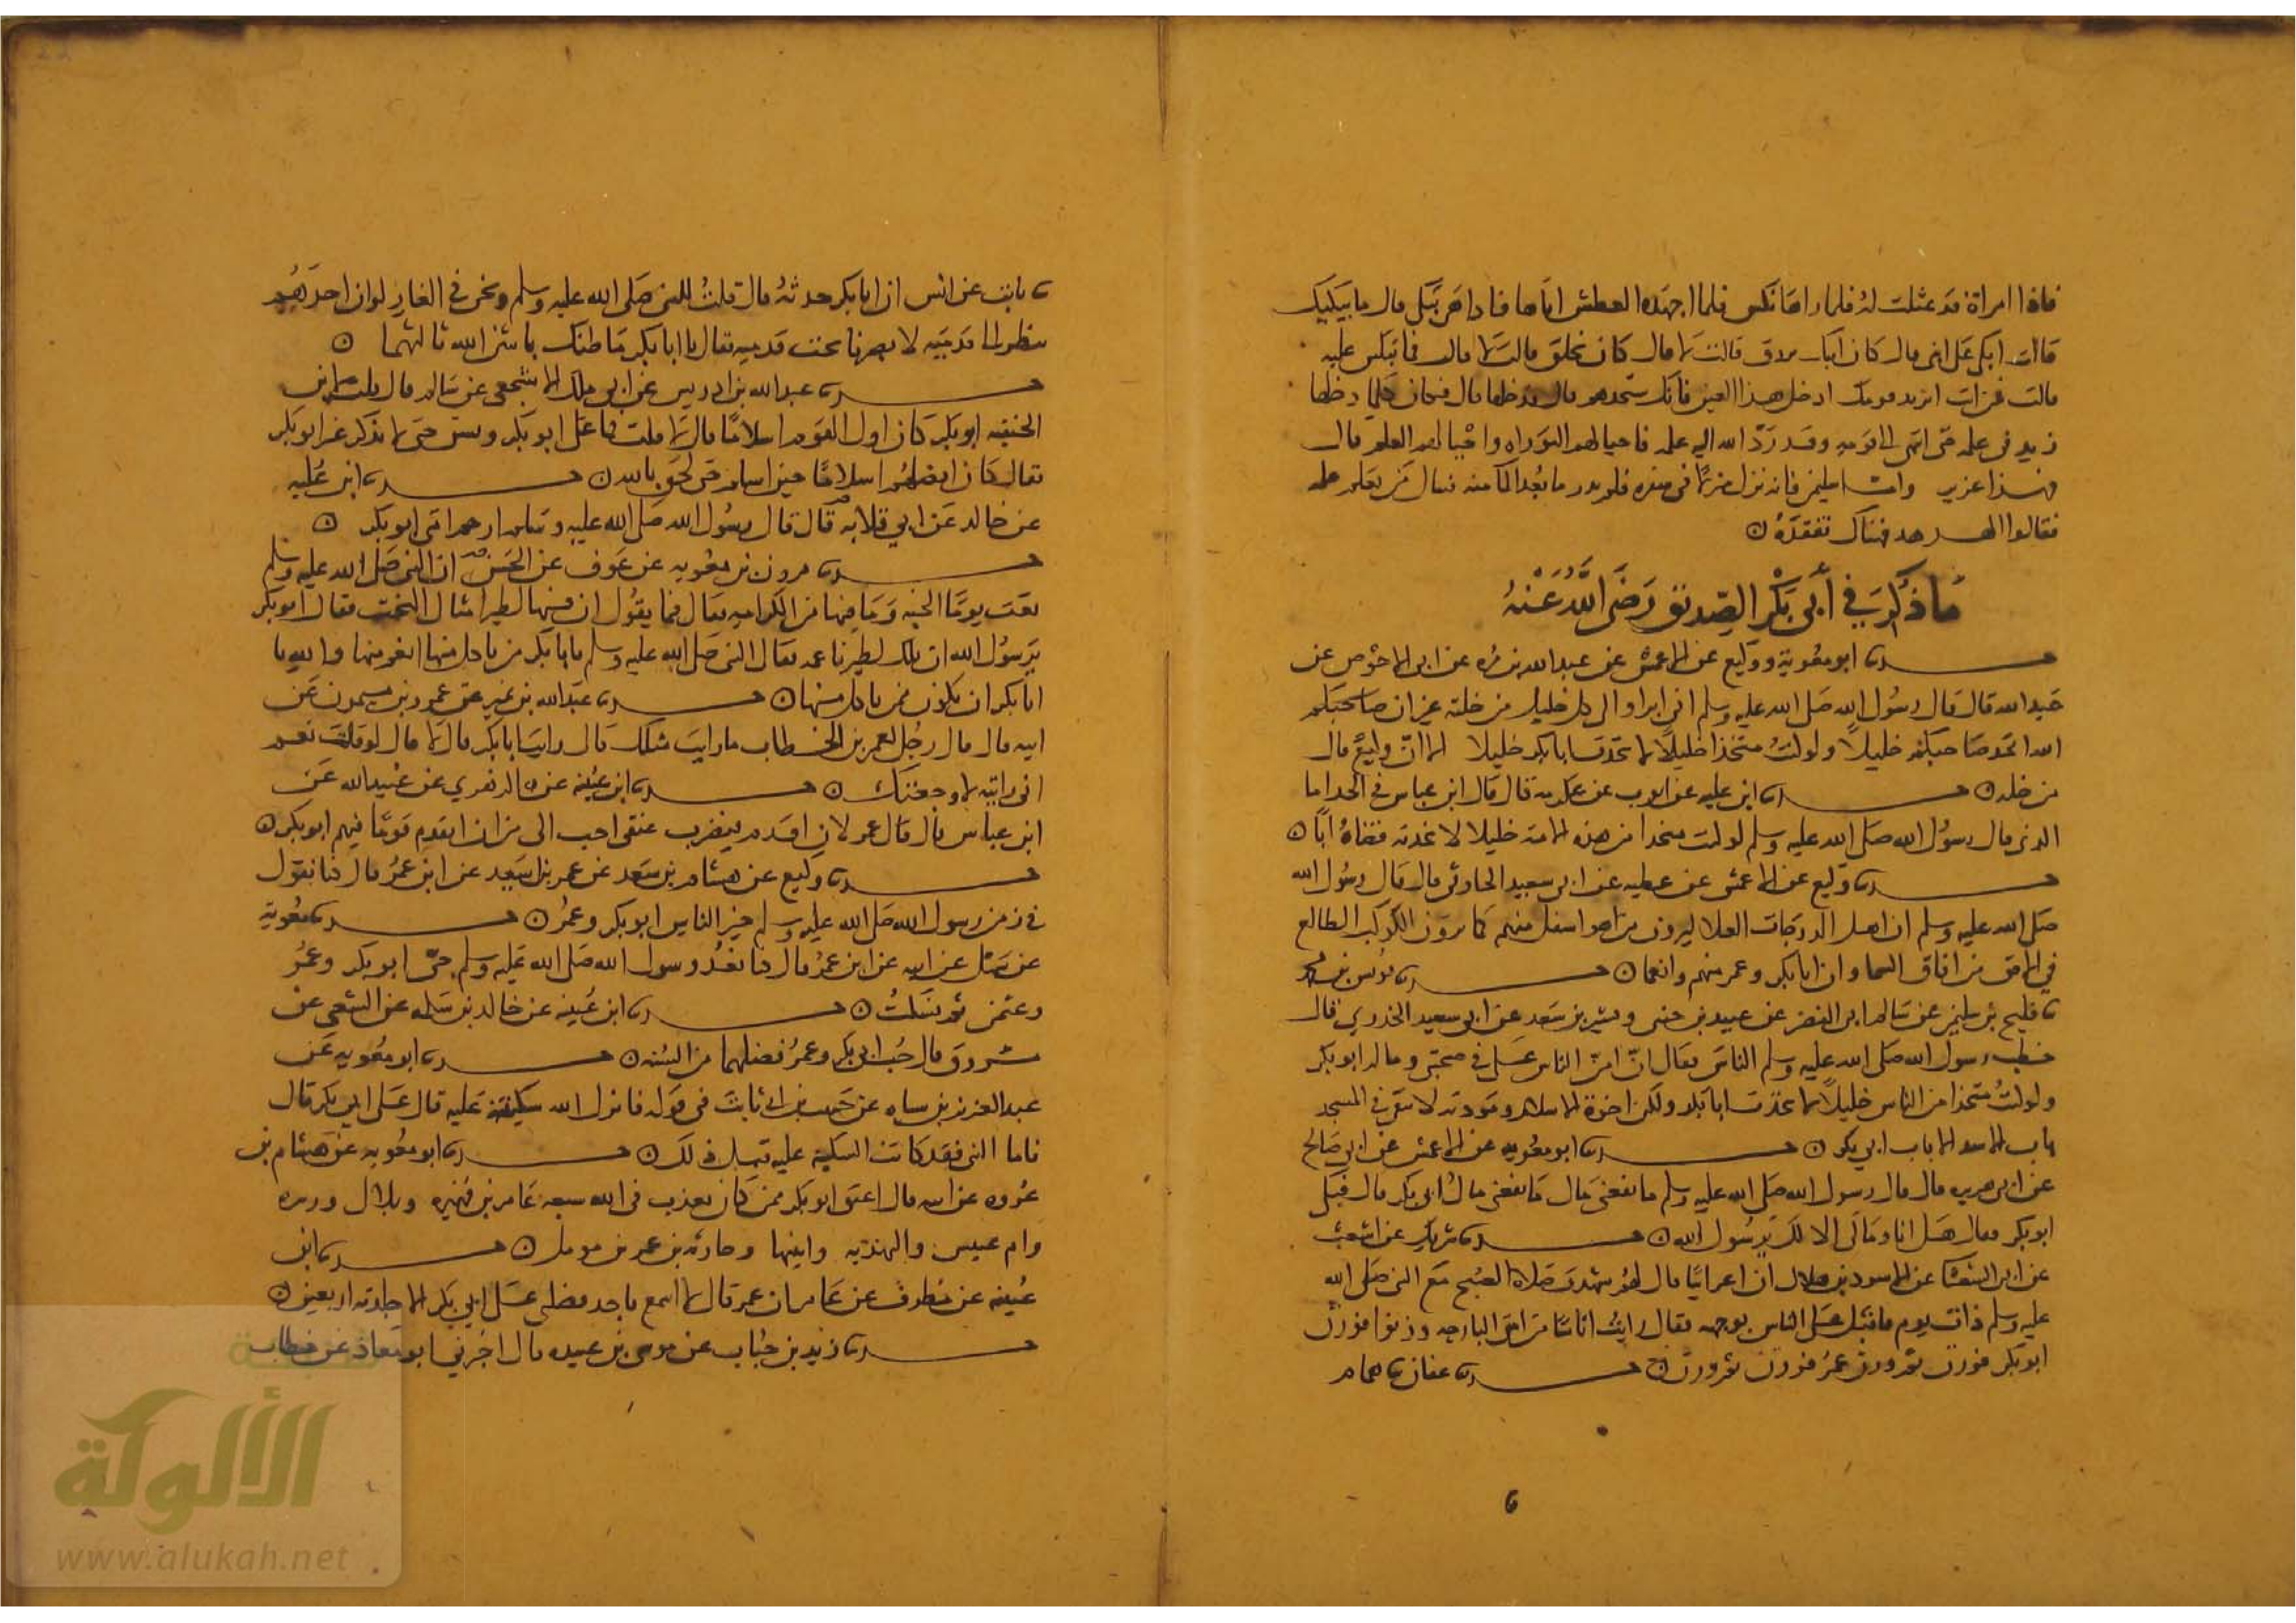 فاذا امراة قد مثلت له فلما راها نكس فلما اجهده العطش اتاها فاذا هي تبكي قال ما يبكيك
قالت ابكي على ابني قال كان ابنك يرزق قالت لا قال كان يخلق قالت لا قال فلا تبكين عليه
قالت فمن انت اتريد قومك ادخل هذا العين فانك ستجدهم قال فدخلها قال فكان كلما دخلها
زيد في علمه حتى انتهى الى قومه وقد رد الله اليه علمه فاحيا لهم التوراه واحيا لهم العلم قال
فهذا عزير واما سليمن فانه نزل منزلا في سفره فلم يدر ما بعد الما منه فسال من يعلم علمه
فقالوا الهدهد فهناك تفقده
ما ذكر في أبي بكر الصديق رضي الله عنه
حدثنا ابو معوية ووكيع عن الاعمش عن عبد الله بن مره عن ابي الاحوص عن
عبد الله قال قال رسول الله صلى الله عليه وسلم اني ابرا الى كل خليل من خلته غير ان صاحبكم
الله اتخذ صاحبكم خليلا ولو كنت متخذا خليلا لاتخذت ابا بكر خليلا الا ان وكيع قال
من خله حدثنا ابن عليه عن ايوب عن عكرمة قال قال ابن عباس في الجد اما
الذي قال رسول الله صلى الله عليه وسلم لو كنت متخذا من هذه الامة خليلا لاتخذته فقضاه ابا
حدثنا وكيع عن الاعمش عن عطيه عن ابي سعيد قال قال رسول الله
صلى الله عليه وسلم ان اهل الدرجات العلا ليرون من هو اسفل منهم كما ترون الكوكب الطالع
في الافق من افاق السما وان ابا بكر وعمر منهم وانعما حدثنا يونس بن محمد
نا فليح بن سليمن عن سالم ابي النضر عن عبيد بن حنين وبسر بن سعد عن ابي سعيد الخدري قال
خطب رسول الله صلى الله عليه وسلم الناس فقال ان امن الناس علي في صحبتي وماله ابو بكر
ولو كنت متخذا من الناس خليلا لاتخذت ابا بكر ولكن اخوة الاسلام ومودته لا يبقين في المسجد
باب الا سد الا باب ابي بكر حدثنا ابو معويه عن الاعمش عن ابي صالح
عن ابي هريره قال قال رسول الله صلى الله عليه وسلم ما نفعني مال ما نفعني مال ابي بكر قال فبكى
ابو بكر فقال هل انا ومالي الا لك يرسول الله حدثنا شريك عن اشعث
عن ابي الشعثا عن الاسود بن هلال ان اعرابيا قال لهم شهدت صلاة الصبح مع النبي صلى الله
عليه وسلم ذات يوم فاقبل على الناس بوجهه فقال رايت اناسا من امتي البارحه وزنوا فوزن
ابو بكر فوزن ثم وزن عمر فوزن ثم وزن حدثنا عفان نا همام
نا ثابت عن انس ان ابا بكر حدثه قال قلت للنبي صلى الله عليه وسلم ونحن في الغار لو ان احدهم
ينظر الى قدميه لابصرنا تحت قدميه فقال يا ابا بكر ما ظنك باثنين الله ثالثهما
حدثنا عبد الله بن ادريس عن ابي ملك الاشجعي عن سالم قال قلت لابن
الحنفيه ابو بكر كان اول القوم اسلاما قال لا قلت فما علا ابو بكر وبسق حتى لا يذكر غير ابو بكر
فقال كان افضلهم اسلاما حين اسلم حتى لحق بالله حدثنا ابن عليه
عن خالد عن ابي قلابه قال قال رسول الله صلى الله عليه وسلم ارحم امتي ابو بكر
حدثنا مرون بن معويه عن عوف عن الحسن ان النبي صلى الله عليه وسلم
نعت يوما الجنه وما فيها من الكرامه فقال فيما يقول ان فيها لطيرا امثال البخت فقال ابو بكر
يرسول الله ان تلك لطير ناعمه فقال النبي صلى الله عليه وسلم يا ابا بكر من ياكل منها انعم منها والله يا
ابا بكر ان تكون ممن ياكل منها حدثنا عبد الله بن نمير عن عمرو بن ميمون عن
ابيه قال قال رجل لعمر بن الخطاب ما رايت مثلك قال رايت ابا بكر قال لا قال لو قلت نعم
اني رايته لاوجعتك حدثنا ابن عيينه عن الزهري عن عبيد الله عن
ابن عباس قال قال عمر لان اقدم فيضرب عنقي احب الي من ان اتقدم قوما فيهم ابو بكر
حدثنا وكيع عن هشام بن سعد عن عمر بن اسيد عن ابن عمر قال كنا نقول
في زمن رسول الله صلى الله عليه وسلم خير الناس ابو بكر وعمر حدثنا ابو معوية
عن سهل عن ابيه عن ابن عمر قال كنا نعد ورسول الله صلى الله عليه وسلم حي ابو بكر وعمر
وعثمن ثم نسكت حدثنا ابن عيينه عن خالد بن سلمه عن الشعبي عن
مسروق قال حب ابي بكر وعمر ومعرفة فضلهما من السنه حدثنا ابو معويه عن
عبد العزيز بن سياه عن حبيب بن ابي ثابت في قوله فانزل الله سكينته عليه قال على ابي بكر قال
فاما النبي فقد كانت السكينة عليه قبل ذلك حدثنا ابو معويه عن هشام بن
عروه عن ابيه قال اعتق ابو بكر ممن كان يعذب في الله سبعه عامر بن فهيره وبلال وزنيره
وام عبيس والنهديه وابنتها وجاريه بن عمرو بن مومل حدثنا ابن
عيينه عن مطرف عن عامر ان عمر قال لا اسمع باحد فضلني على ابي بكر الا جلدته اربعين
حدثنا زيد بن حباب عن موسى بن عبيده قال اخبرني ابو معاذ عن خطاب
الألوكة
www.alukah.net